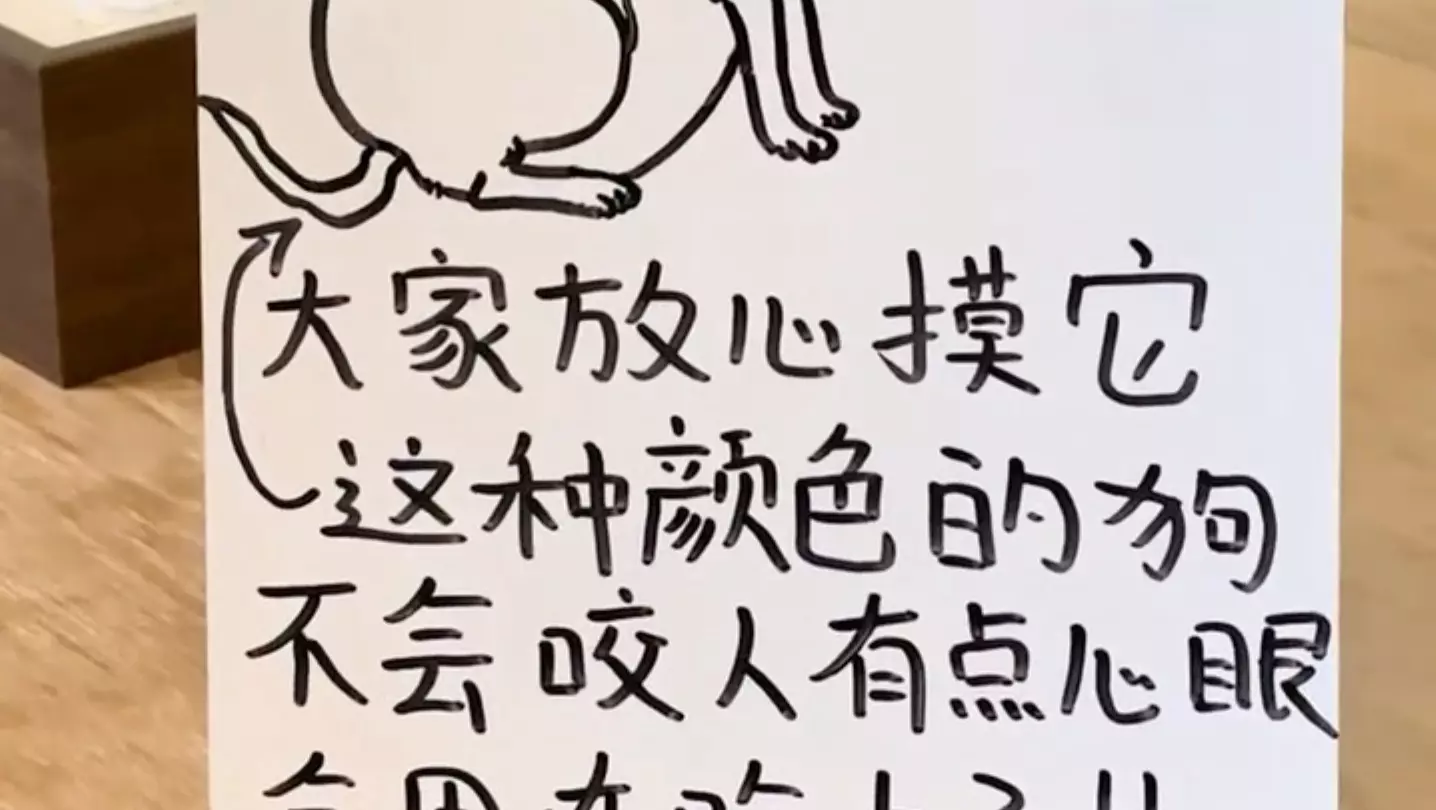 大家放心摸它
这种颜色的狗
不会咬人有点心眼